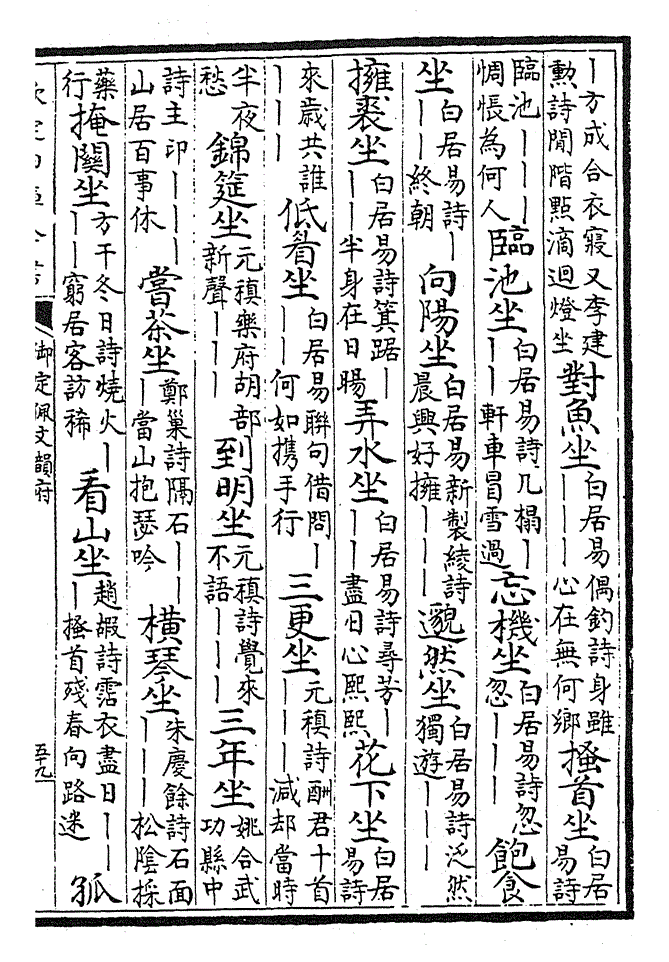 ｜方成合衣寢又李建勲詩閒階㸃滴迴燈坐 對魚坐 白居易偶釣詩身雖｜｜｜心在無何鄉 搔首坐 白居易詩
臨池｜｜｜惆悵為何人 臨池坐 白居易詩几榻｜｜｜軒車冒雪過 忘機坐 白居易詩忽忽｜｜｜ 飽食
坐 白居易詩｜｜｜終朝 向陽坐 白居易新製綾詩晨興好擁｜｜｜ 邈然坐 白居易詩泛然獨遊｜｜｜
擁裘坐 白居易詩箕踞｜｜｜半身在日暘 弄水坐 白居易詩尋芳｜｜｜盡日心熙熙 花下坐 白居易詩
來歲共誰｜｜｜ 低看坐 白居易聯句借問｜｜｜何如携手行 三更坐 元稹詩酬君十首｜｜｜減却當時
半夜愁 錦筵坐 元稹樂府胡部新聲｜｜｜ 到明坐 元稹詩覺來不語｜｜｜ 三年坐 姚合武功縣中
詩主印｜｜｜山居百事休 嘗茶坐 鄭巢詩隔石｜｜｜當山抱瑟吟 橫琴坐 朱慶餘詩石面｜｜｜松陰採
藥行 掩關坐 方干冬日詩燒火｜｜｜窮居客訪稀 看山坐 趙嘏詩霑衣盡日｜｜｜搔首殘春向路迷 孤
欽定四庫全書 御定佩文韻府 五十九